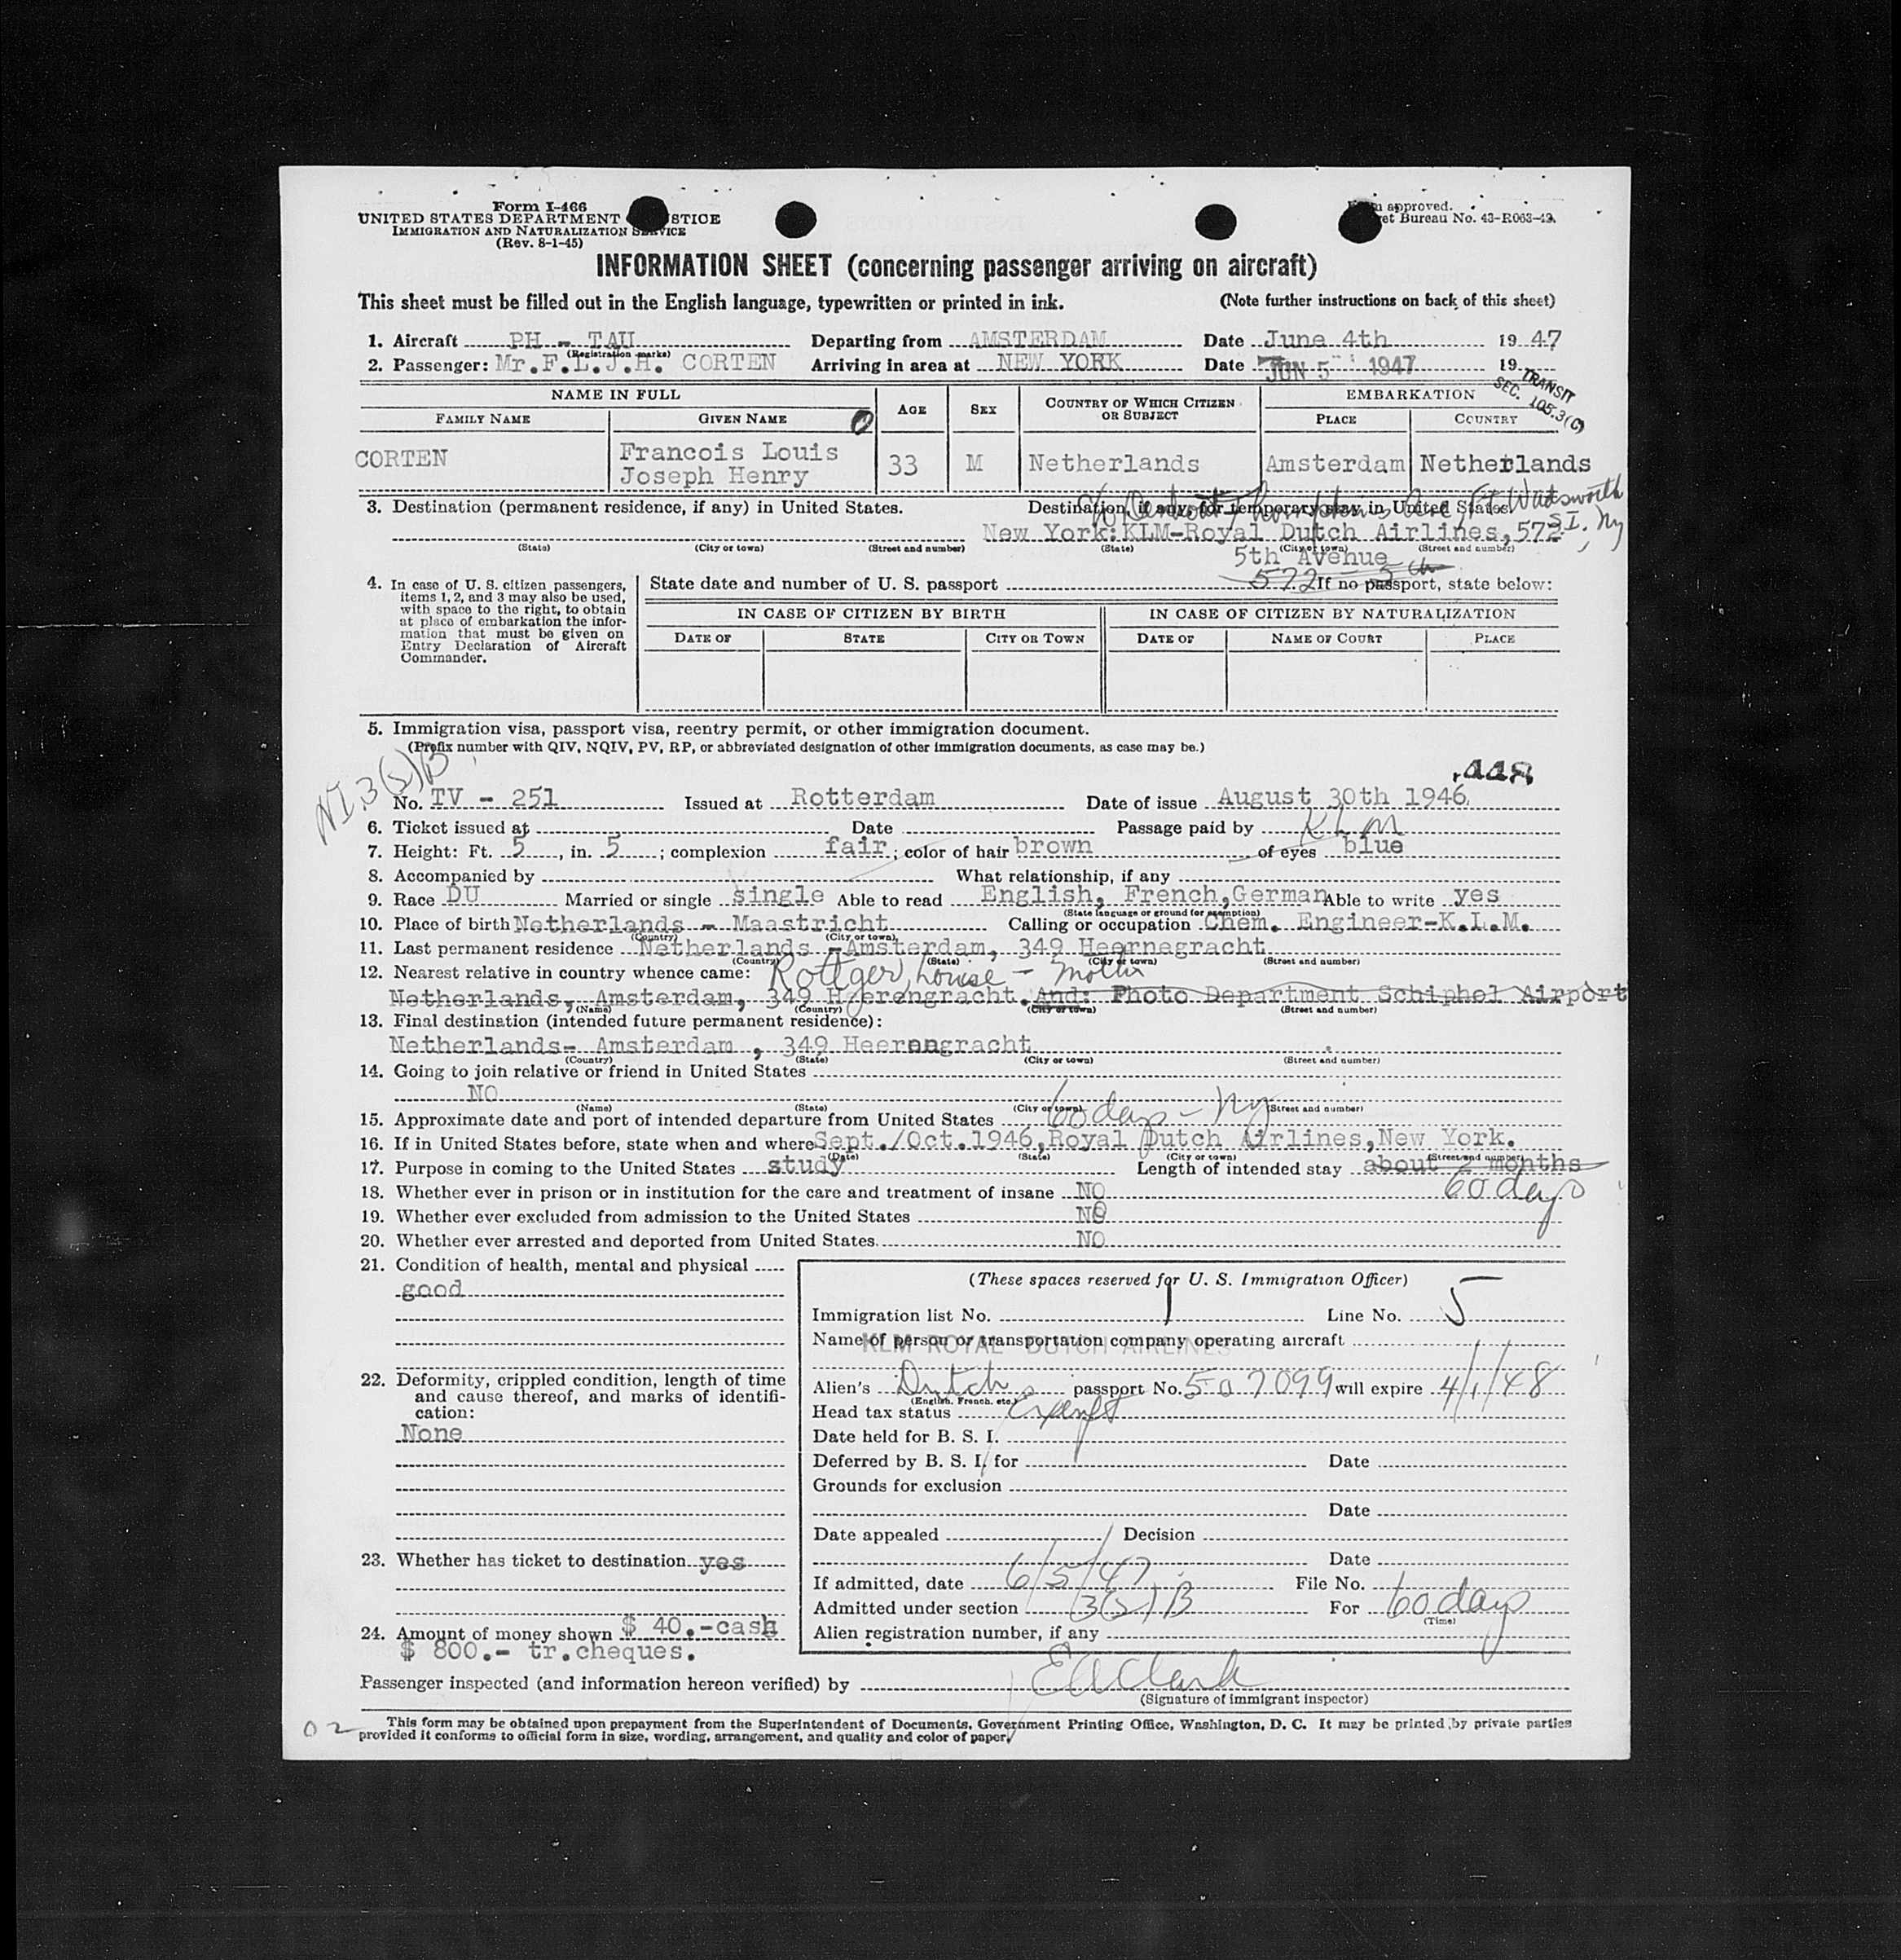 Form I-466
UNITED STATES DEPARTMENT STICE
IMMIGRATION AND NATURALIZATION SERVICE
(Rev. 8-1-45)
approved.
et Bureau No. 43-R063-42.
INFORMATION SHEET (concerning passenger arriving on aircraft)
This sheet must be filled out in the English language, typewritten or printed in ink. (Note further instructions on back of this sheet)
1. Aircraft PH - TAU Departing from AMSTERDAM Date June 4th 19 47
(Registration marks)
2. Passenger: Mr.F.L.J.H. CORTEN Arriving in area at NEW YORK Date JUN 5 1947 19
TRANSIT
SEC. 105.3(C)
NAME IN FULL AGE SEX COUNTRY OF WHICH CITIZEN OR SUBJECT EMBARKATION
FAMILY NAME GIVEN NAME PLACE COUNTRY
CORTEN Francois Louis Joseph Henry 33 M Netherlands Amsterdam Netherlands
3. Destination (permanent residence, if any) in United States. Destination, if any, for temporary stay in United States.
Ave, Ft Wadsworth
S.I., Ny
New York:KLM-Royal Dutch Airlines,572
(State) (City or town) (Street and number) (State) (City or town) (Street and number)
5th Avenue
572 5th
4. In case of U. S. citizen passengers, items 1, 2, and 3 may also be used, with space to the right, to obtain at place of embarkation the information that must be given on Entry Declaration of Aircraft Commander.
State date and number of U. S. passport If no passport, state below:
IN CASE OF CITIZEN BY BIRTH IN CASE OF CITIZEN BY NATURALIZATION
DATE OF STATE CITY OR TOWN DATE OF NAME OF COURT PLACE
5. Immigration visa, passport visa, reentry permit, or other immigration document.
(Prefix number with QIV, NQIV, PV, RP, or abbreviated designation of other immigration documents, as case may be.)
448
No. TV - 251 Issued at Rotterdam Date of issue August 30th 1946
6. Ticket issued at Date Passage paid by KLM
7. Height: Ft. 5, in. 5; complexion fair; color of hair brown of eyes blue
8. Accompanied by What relationship, if any
9. Race DU Married or single single Able to read English, French,German Able to write yes
(State language or ground for exemption)
10. Place of birth Netherlands - Maastricht Calling or occupation Chem. Engineer-K.L.M.
(Country) (City or town)
11. Last permanent residence Netherlands -Amsterdam, 349 Heernegracht
(Country) (State) (City or town) (Street and number)
12. Nearest relative in country whence came: Rottger, Louise - Mother
Netherlands, Amsterdam, 349 Heerengracht. And: Photo Department Schiphol Airport
(Name) (Country) (City or town) (Street and number)
13. Final destination (intended future permanent residence):
Netherlands- Amsterdam , 349 Heerengracht
(Country) (State) (City or town) (Street and number)
14. Going to join relative or friend in United States
NO
(Name) (State) (City or town) (Street and number)
15. Approximate date and port of intended departure from United States 60 days - Ny
16. If in United States before, state when and where Sept./Oct.1946,Royal Dutch Airlines,New York.
(Date) (State) (City or town) (Street and number)
17. Purpose in coming to the United States study Length of intended stay about 2 months
60 days
18. Whether ever in prison or in institution for the care and treatment of insane NO
19. Whether ever excluded from admission to the United States NO
20. Whether ever arrested and deported from United States. NO
21. Condition of health, mental and physical
good
22. Deformity, crippled condition, length of time and cause thereof, and marks of identification:
None
23. Whether has ticket to destination yes
24. Amount of money shown $ 40.-cash
$ 800.- tr.cheques.
(These spaces reserved for U. S. Immigration Officer)
Immigration list No. 1 Line No. 5
Name of person or transportation company operating aircraft
KLM ROYAL DUTCH AIRLINES
Alien's Dutch passport No. 507099 will expire 4/1/48
(English, French, etc.)
Head tax status Exempt
Date held for B. S. I.
Deferred by B. S. I. for Date
Grounds for exclusion
Date
Date appealed Decision
Date
If admitted, date 6/5/47 File No.
Admitted under section 3(2)B For 60 days
(Time)
Alien registration number, if any
Passenger inspected (and information hereon verified) by EAClark
(Signature of immigrant inspector)
02
This form may be obtained upon prepayment from the Superintendent of Documents, Government Printing Office, Washington, D. C. It may be printed by private parties
provided it conforms to official form in size, wording, arrangement, and quality and color of paper.